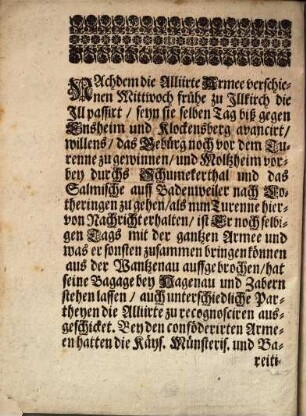 NAchdem die Alliirte Armee verschie-
nen Mittwoch frühe zu Illkirch die
Ill passirt / seyn sie selben Tag biß gegen
Ensheim und Klockensberg avancirt /
willens / das Gebürg noch vor dem Tu-
renne zu gewinnen / und Moltzheim vor-
bey durchs Schumekerthal und das
Salmische auff Badenweiler nach Lo-
theringen zu gehen / als nun Turenne hier-
von Nachricht erhalten / ist Er noch selbi-
gen Tags mit der gantzen Armee und
was er sonsten zusammen bringen können
aus der Wantzenau auffgebrochen / hat
seine Bagage bey Hagenau und Zabern
stehen lassen / auch unterschiedliche Par-
theyen die Alliirte zu recognosciren aus-
geschicket. Bey den conföderirten Arme-
en hatten die Käys. Münsteris. und Ba-
reiti-